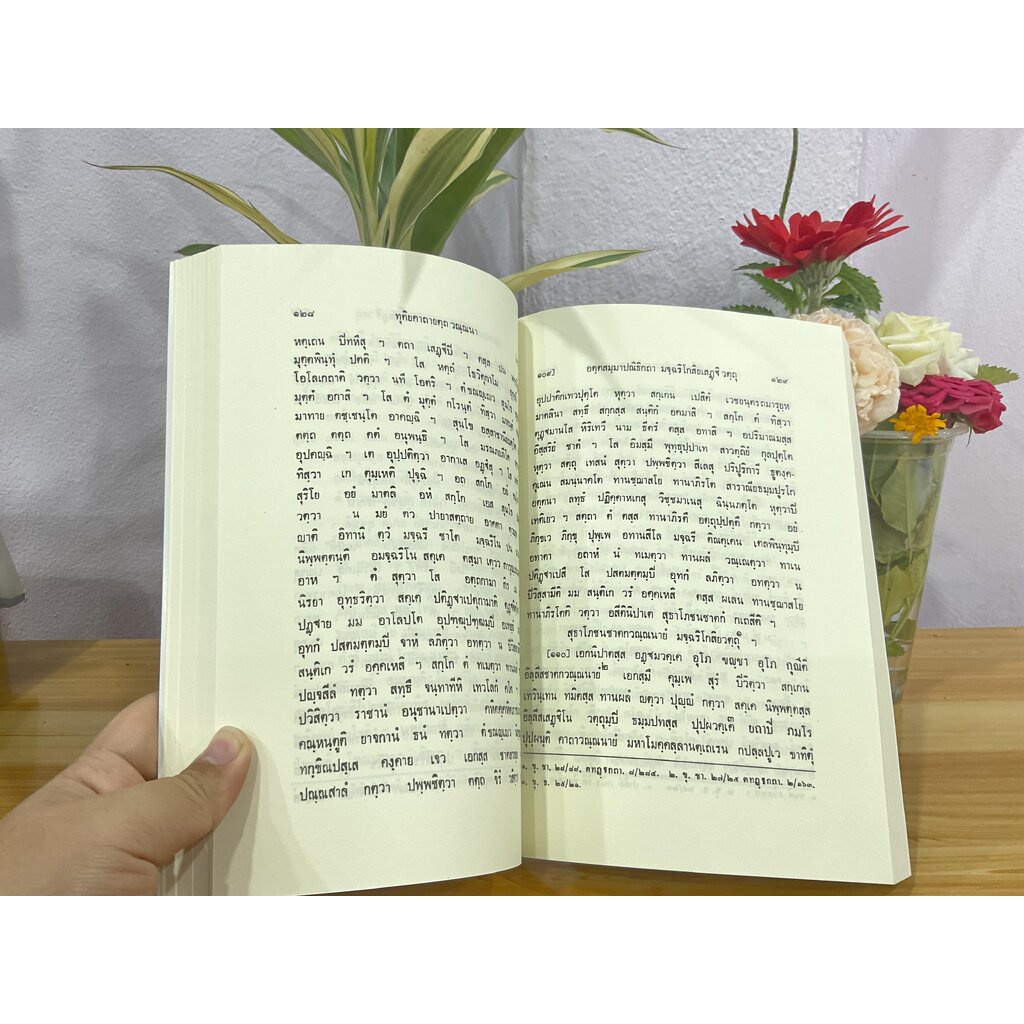 ๑๒๘ ทุติยคาถายตฺถ วณฺณนา
หตฺเถน ปีทหึสุ ฯ ตถา เสฏฺฐีปี ฯ ตสฺส
มุตฺตพินฺทุํ ปตติ ฯ โส หตฺถํ โธวิตุกาโม
โอโลเกถาติ วตฺวา นทึ โอตริ ฯ
มุตฺตํ อกาสิ ฯ โส ตํ มุตฺตํ กโรนฺตํ ทิสฺวา
มาทาย ตชฺเชนฺโต อาคญฺฉิ ฯ สุนโข
ตตฺถ ตตฺถ คตํ อนุพนฺธิ ฯ โส
อุปคญฺฉิ ฯ เต อุปฺปติตฺวา อากาเส อฏฺฐํสุ ฯ โส
ทิสฺวา เก ตุมฺเหติ ปุจฺฉิ ฯ อถ สกฺโก
สุริโย อยํ มาตลิ อหํ สกฺโก
วตฺวา น มยํ ตว ปายาสตฺถาย อาคตา
ญาติ อิทานิ ตฺวํ มจฺฉรี ชาโต
นิพฺพตฺตนฺติ อมจฺฉริโน สคฺเค ตสฺมา
อาห ฯ ตํ สุตฺวา โส อตฺถกามา
นิรยา อุทฺธริตฺวา สคฺเค ปติฏฺฐาเปตุกามาติ
ปฏฺฐาย มม อาโลปโต อุปฑฺฒุปฑฺฒมฺปิ
อุทกํ ปสตมตฺตมฺปิ จาหํ ลภิตฺวา อทตฺวา น
สนฺติเก วรํ อคฺคเหสิ ฯ สกฺโก ตํ ทเมตฺวา
ปญฺจสีลํ ทตฺวา สทฺธึ จนฺทาทีหิ เทวโลกํ
ปวิสิตฺวา ราชานํ อนุชานาเปตฺวา
คณฺหนฺตูติ ยาจกานํ ธนํ ทตฺวา
ทกฺขิณปสฺเส คงฺคาย เจว เอกสฺส
ปณฺณสาลํ กตฺวา ปพฺพชิตฺวา ตตฺถ จิรํ
๑๐๙] อตฺตสมฺมาปณิธิกถา มจฺฉริโกสิยเสฏฺฐิ วตฺถุ ๑๒๙
อุปปาติกเทวปุตฺโต หุตฺวา สกฺเกน เปสิตํ เวชยนฺตรถมารุยฺห
มาตลินา สทฺธึ สกฺกสฺส สนฺติกํ อคมาสิ ฯ สกฺโก ตํ ทิสฺวา
ตุฏฺฐมานโส หิริเทวึ นาม ธีตรํ ตสฺส อทาสิ ฯ อปริมาณมสฺส
อิสฺสริยํ ชาตํ ฯ โส อิมสฺมึ พุทฺธุปฺปาเท สาวตฺถิยํ กุลปุตฺโต
หุตฺวา สตฺถุ เทสนํ สุตฺวา ปพฺพชิตฺวา สีเลสุ ปริปูริการี ธูตงฺค-
คุเณน สมนฺนาคโต ทานชฺฌาสโย ทานาภิรโต สาราณียธมฺมปูรโก
อตฺตนา ลทฺธํ ปฏิคฺคาหเกสุ วิชฺชมาเนสุ ฉินฺนภตฺโต หุตฺวาปี
เทติเยว ฯ สตฺถา ตํ ตสฺส ทานาภิรตึ อตฺถุปฺปตฺตึ กตฺวา อยํ
ภิกฺขเว ภิกฺขุ ปุพฺเพ อทานสีโล มจฺฉรี ติณคฺเคน เตลพินฺทุมฺปี
อทาตา อถาหํ นํ ทเมตฺวา ทานผลํ วณฺเณตฺวา ทาเน
ปติฏฺฐาเปสึ โส ปสตมตฺตมฺปี อุทกํ ลภิตฺวา อทตฺวา น
ปิวิสฺสามีติ มม สนฺติเก วรํ อคฺคเหสิ ตสฺส ผเลน ทานชฺฌาสโย
ทานาภิรโตติ วตฺวา อสีตินิปาเต สุธาโภชนชาตกํ กเถสีติ ฯ
สุธาโภชนชาตกวณฺณนายํ มจฺฉริโกสิยวตฺถุ๑ ฯ
[๑๑๐] เอกนิปาตสฺส อฏฺฐมวคฺเค อุโภ ขญฺชา อุโภ กุณีติ
อิลฺลีสชาตกวณฺณนายํ๒ เอกสฺมึ คุมฺเพ สุรํ ปิวิตฺวา สกฺเกน
เทวินฺเทน ทมิตสฺส ทานผลํ ญตฺวา ปุญฺญํ กตฺวา สคฺเค นิพฺพตฺตสฺส
อิลฺลีสเสฏฺฐิโน วตฺถุมฺปี ธมฺมปทสฺส ปุปฺผวคฺเค๓ ยถาปี ภมโร
ปุปฺผนฺติ คาถาวณฺณนายํ มหาโมคฺคลฺลานตฺเถเรน
๑. ขุ. ชา. ๒๘/๘๘. ตทฏฺฐกถา. ๘/๒๘๔. ๒. ขุ. ชา. ๒๗/๒๕ ตทฏฺฐกถา. ๒/๑๖๓.
๓. ขุ. ธ. ๒๕/๒๑.